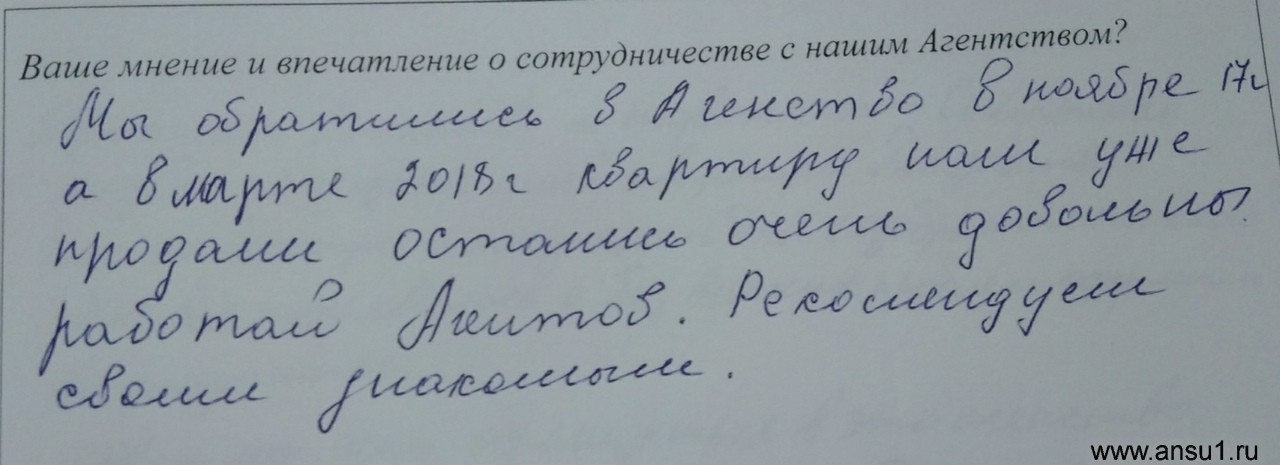 Ваше мнение и впечатление о сотрудничестве с нашим Агентством?
Мы обратились в Агенство в ноябре 17г
а в марте 2018г квартиру нам уже
продали остались очень довольны
работай Агентов. Рекомендуем
своим знакомым.
www.ansu1.ru